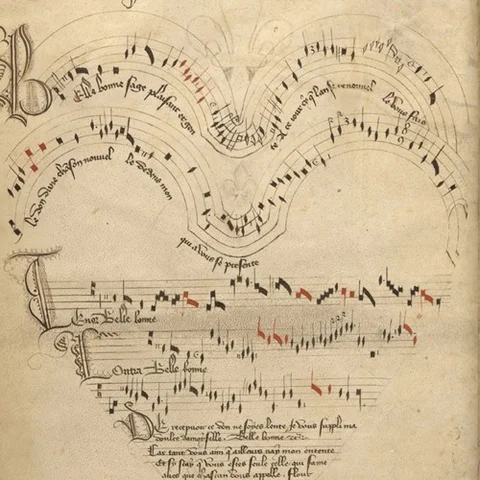 Belle bonne sage plaisant et gen
te A ce iour cy q lan se renouvel
le vous fais
le don dune chanson nouvel
le dedens mon
qui a vous se presente
Tenor Belle bonne
Contra Belle bonne
De recepuoir ce don ne soyes lente Je vous suppli ma
doulce damoyselle. Belle bonne
Car tant vous aim q ailleurs nay mon entente
Et sy scay q vous estes seule celle qui fame
aues que chascun vous appelle. flour